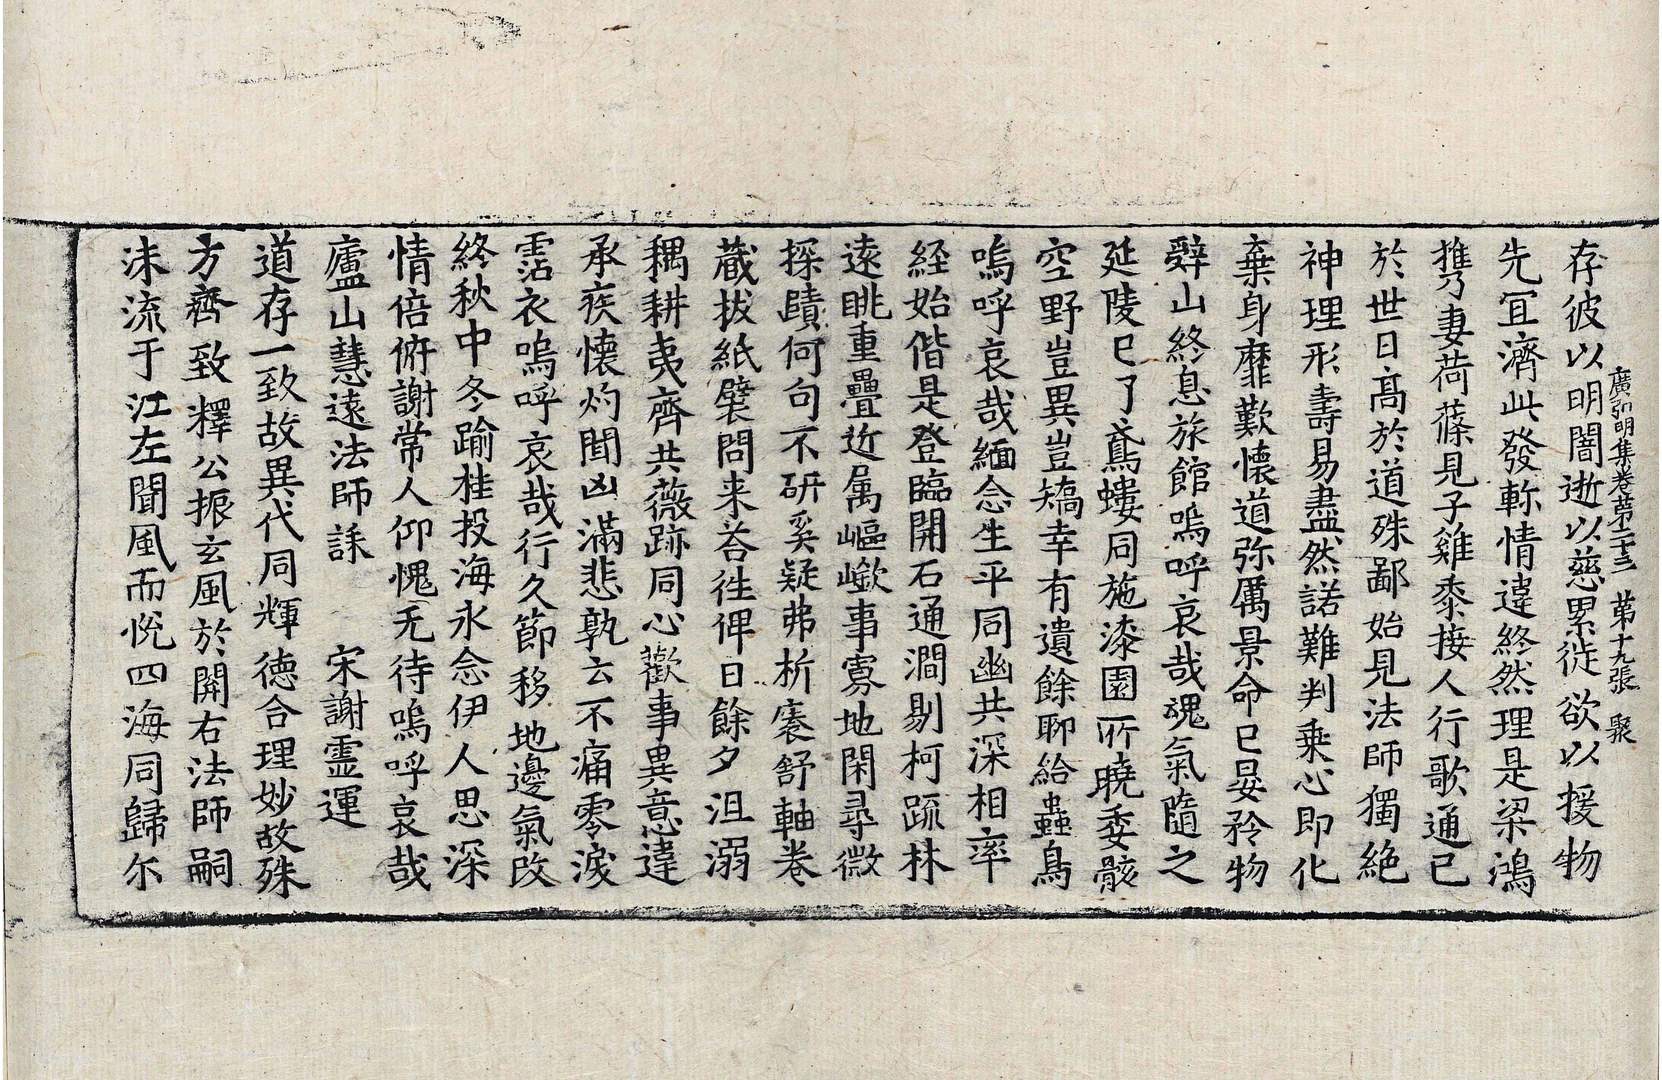 廣弘明集卷第二十三　第十九張　聚
存彼以明闇逝以慈累徙欲以援物
先冝濟此發軫情違終然理是梁鴻
携妻荷蓧見子雞黍接人行歌通已
於世日髙於道殊鄙始見法師獨絶
神理形壽易盡然諾難判乗心即化
棄身靡歎懐道弥厲景命已晏矜物
辤山終息旅館嗚呼哀哉魂氣隨之
延陵已了鳶螻同施漆園所曉委骸
空野豈異豈矯幸有遺餘聊給蟲鳥
嗚呼哀哉緬念生平同幽共深相率
経始偕是登臨開石通澗剔柯疏林
遠眺重疊近属嶇嶔事寡地閑尋微
探賾何句不研奚疑弗析褰舒軸卷
蔵拔紙襞問来荅徃俾日餘夕沮溺
耦耕夷齊共薇跡同心歡事異意違
承疾懐灼聞凶滿悲孰云不痛零淚
霑衣嗚呼哀哉行久節移地邊氣改
終秋中冬踰桂投海永念伊人思深
情倍俯謝常人仰愧无待嗚呼哀哉
廬山慧遠法師誄　宋謝霊運
道存一致故異代同輝徳合理妙故殊
方齊致釋公振玄風於開右法師嗣
沬流于江左聞風而恱四海同歸尔